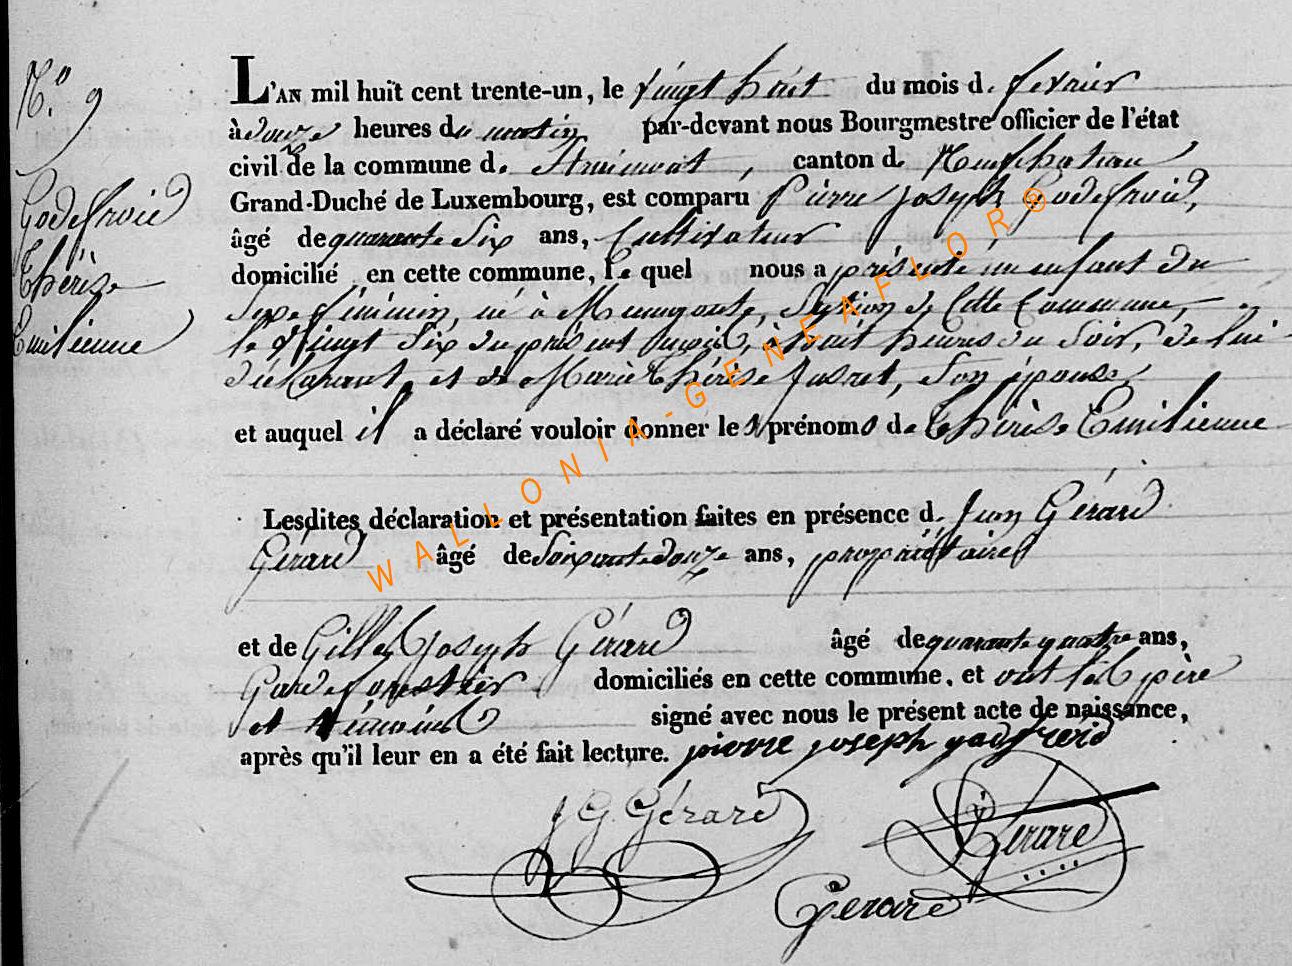 N.o 9
Godefroid
Thérèse
Emilienne
L'AN mil huit cent trente-un, le vingt huit du mois d. fevrier
à douze heures du matin par-devant nous Bourgmestre officier de l'état
civil de la commune d. Strimont, canton d. Neufchateau
Grand-Duché de Luxembourg, est comparu Pierre Joseph Godefroid,
âgé de quarante Six ans, Cultivateur
domicilié en cette commune, le quel nous a présenté un enfant du
Sexe féminin, né à Menugoute, Section de Cette Commune,
le vingt Six du présent mois, à huit heures du Soir, de lui
déclarant, et de Marie Thérèse Jusret, Son épouse,
et auquel il a déclaré vouloir donner les prénoms de Thérèse Emilienne
Lesdites déclaration et présentation faites en présence d. Jean Gérard
Gérard âgé de Soixante douze ans, propriétaire
et de Gilles Joseph Gérard âgé de quarante quatre ans,
Garde forestier domiciliés en cette commune, et ont les père
et témoins signé avec nous le présent acte de naissance,
après qu'il leur en a été fait lecture. pierre joseph godfreid
J G Gérard
Gérard
Gerard
WALLONIA-GENEAFLOR®